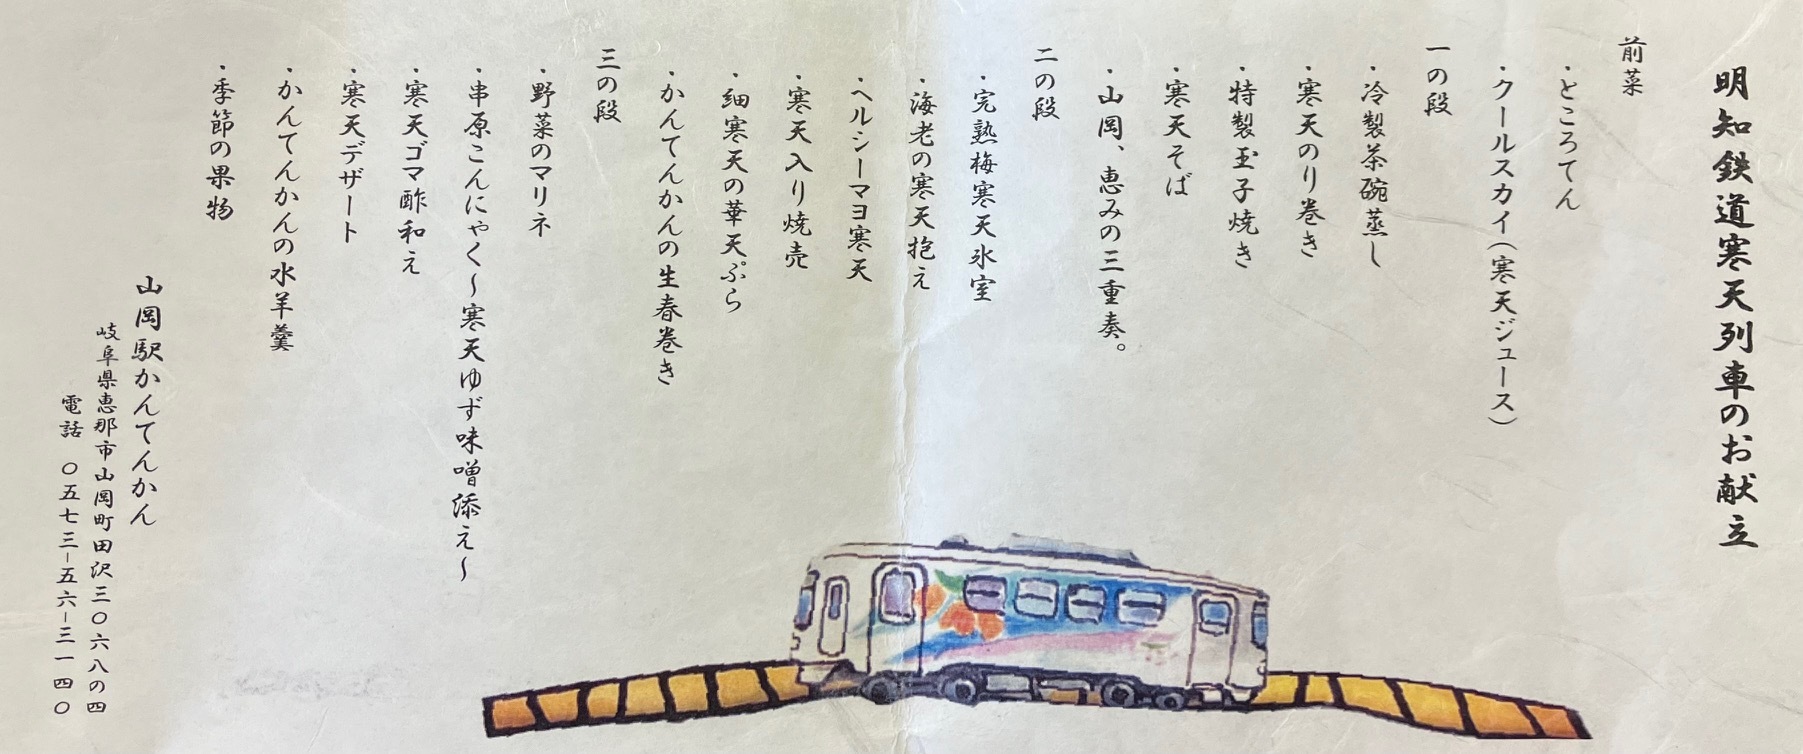 明知鉄道寒天列車のお献立
前菜
・ところてん
・クールスカイ（寒天ジュース）
一の段
・冷製茶碗蒸し
・寒天のり巻き
・特製玉子焼き
・寒天そば
・山岡、恵みの三重奏。
二の段
・完熟梅寒天氷室
・海老の寒天抱え
・ヘルシーマヨ寒天
・寒天入り焼売
・細寒天の華天ぷら
・かんてんかんの生春巻き
三の段
・野菜のマリネ
・串原こんにゃく～寒天ゆず味噌添え～
・寒天ゴマ酢和え
・寒天デザート
・かんてんかんの水羊羹
・季節の果物
山岡駅かんてんかん
岐阜県恵那市山岡町田沢三〇六八の四
電話 〇五七三−五六−三一四〇